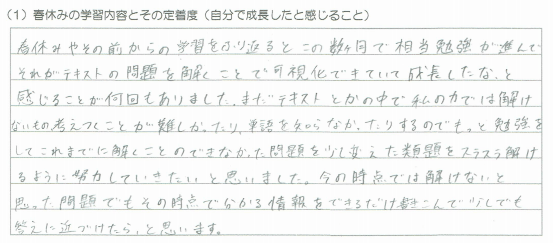 (1) 春休みの学習内容とその定着度(自分で成長したと感じること)
春休みやその前からの学習をふり返るとこの数ヶ月で相当勉強が進んで
それがテキストの問題を解くことで可視化できていて成長したな、と
感じることが何回もありました。まだテキストとかの中で私の力では解け
ないもの考えつくことが難しかったり、単語を知らなかったりするのでもっと勉強を
してこれまでに解くことのできなかった問題を少し変えた類題をスラスラ解け
るように努力していきたいと思いました。今の時点では解けないと
思った問題でもその時点で分かる情報をできるだけ書きこんで少しでも
答えに近づけたら、と思います。